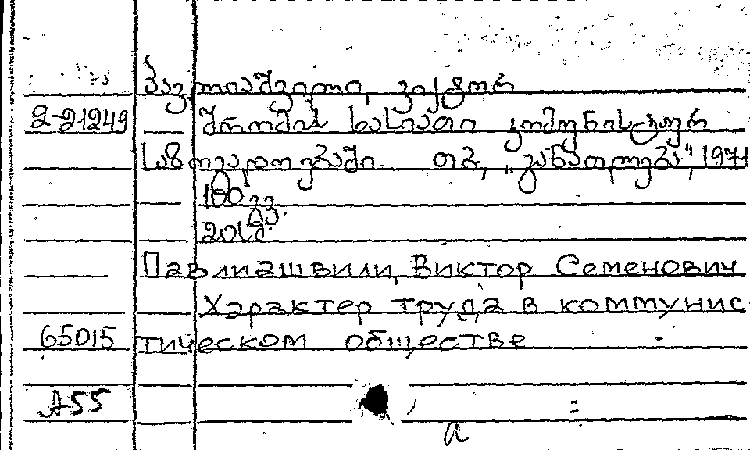 პავლიაშვილი, ვიქტორ
2-21249 შრომის ხასიათი კომუნისტურ
საზოგადოებაში. თბ., „განათლება“, 1971
180 გვ.
Павлиашвили, Виктор Семенович
Характер труда в коммунис
65015 тическом обществе
A55